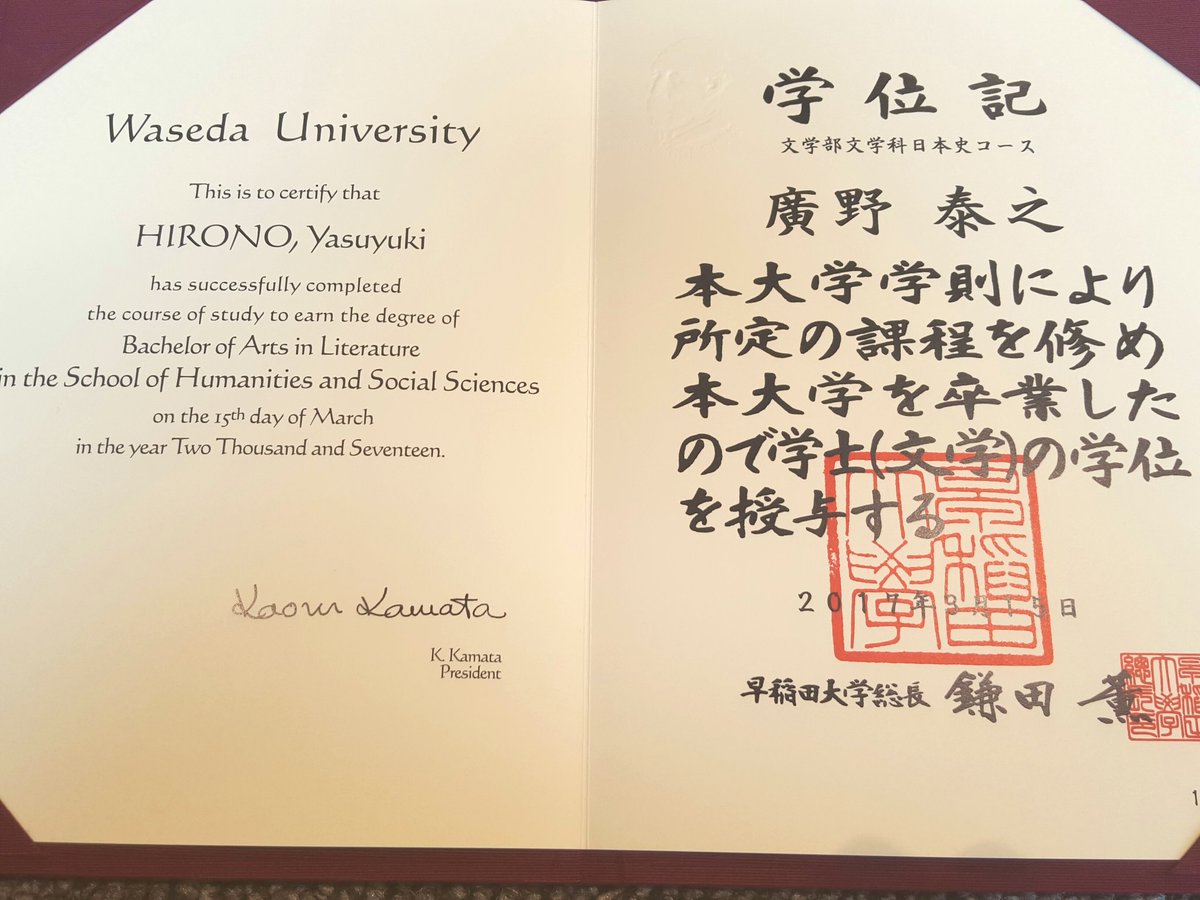 Waseda University
This is to certify that
HIRONO, Yasuyuki
has successfully completed
the course of study to earn the degree of
Bachelor of Arts in Literature
in the School of Humanities and Social Sciences
on the 15th day of March
in the year Two Thousand and Seventeen.
Kaoru Kamata
K. Kamata
President
学位記
文学部文学科日本史コース
廣野 泰之
本大学学則により
所定の課程を修め
本大学を卒業した
ので学士(文学)の学位
を授与する
早稲田大學
2017年3月15日
早稲田大学総長 鎌田 薫